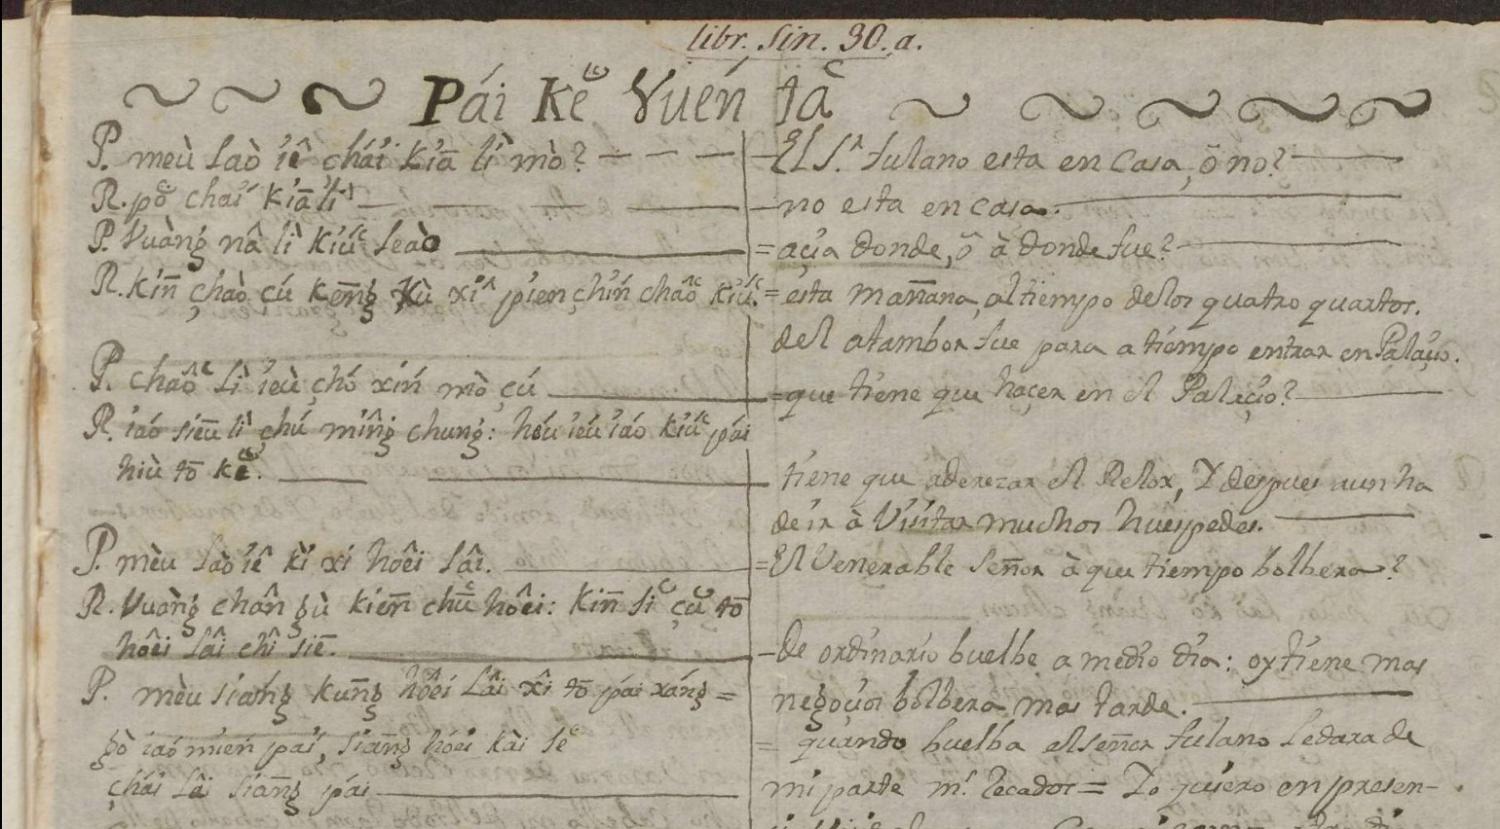 libr. sin. 30. a.
Pái Kĕ Vuén tă
P. meù laò iê chái kiā lì mò? — El Sr. fulano esta en casa, ō no?
R. pŏ chái kiā lì — no esta en casa.
P. Vuàng nâ lì kiú leào = açia donde, ô à donde fue?
R. Kin̄ çhaò çú kēng xî pien chín chaô kiú. = esta mañana, al tiempo delos quatro quartos.
del atambor fue para a tiempo entrar en Palaçio.
P. chaô lì ieù çhó xín mò çú = que tiene que haçer en el Palaçio?
R. iáó sieū lì çhú mîng chung: héú iéú iáó kiú pái
hiù tō kĕ. tiene que aderezar el Relox, Y despues aun ha
de ir à Visitar muchos huespedes.
P. mèu laò iê kì xî hôêi lâi. = El Venerable Señor à que tiempo bolbera?
R. Vuàng chân gù kień chŭ hôêi: kin̄ ... çŭ tō
hôêi lâi chî siē. — de ordinario buelbe a medio dia: oy tiene mas
negoçios bolbera mas tarde.
P. mèu siáng kung hôêi lâi xî tō pái xáng =
gò iáó mień pái, siāng hôêi kài ...
çhái lâi siāng pái = quando buelba el señor fulano le dara de
mi parte ... recados = Yo quiero en presen-